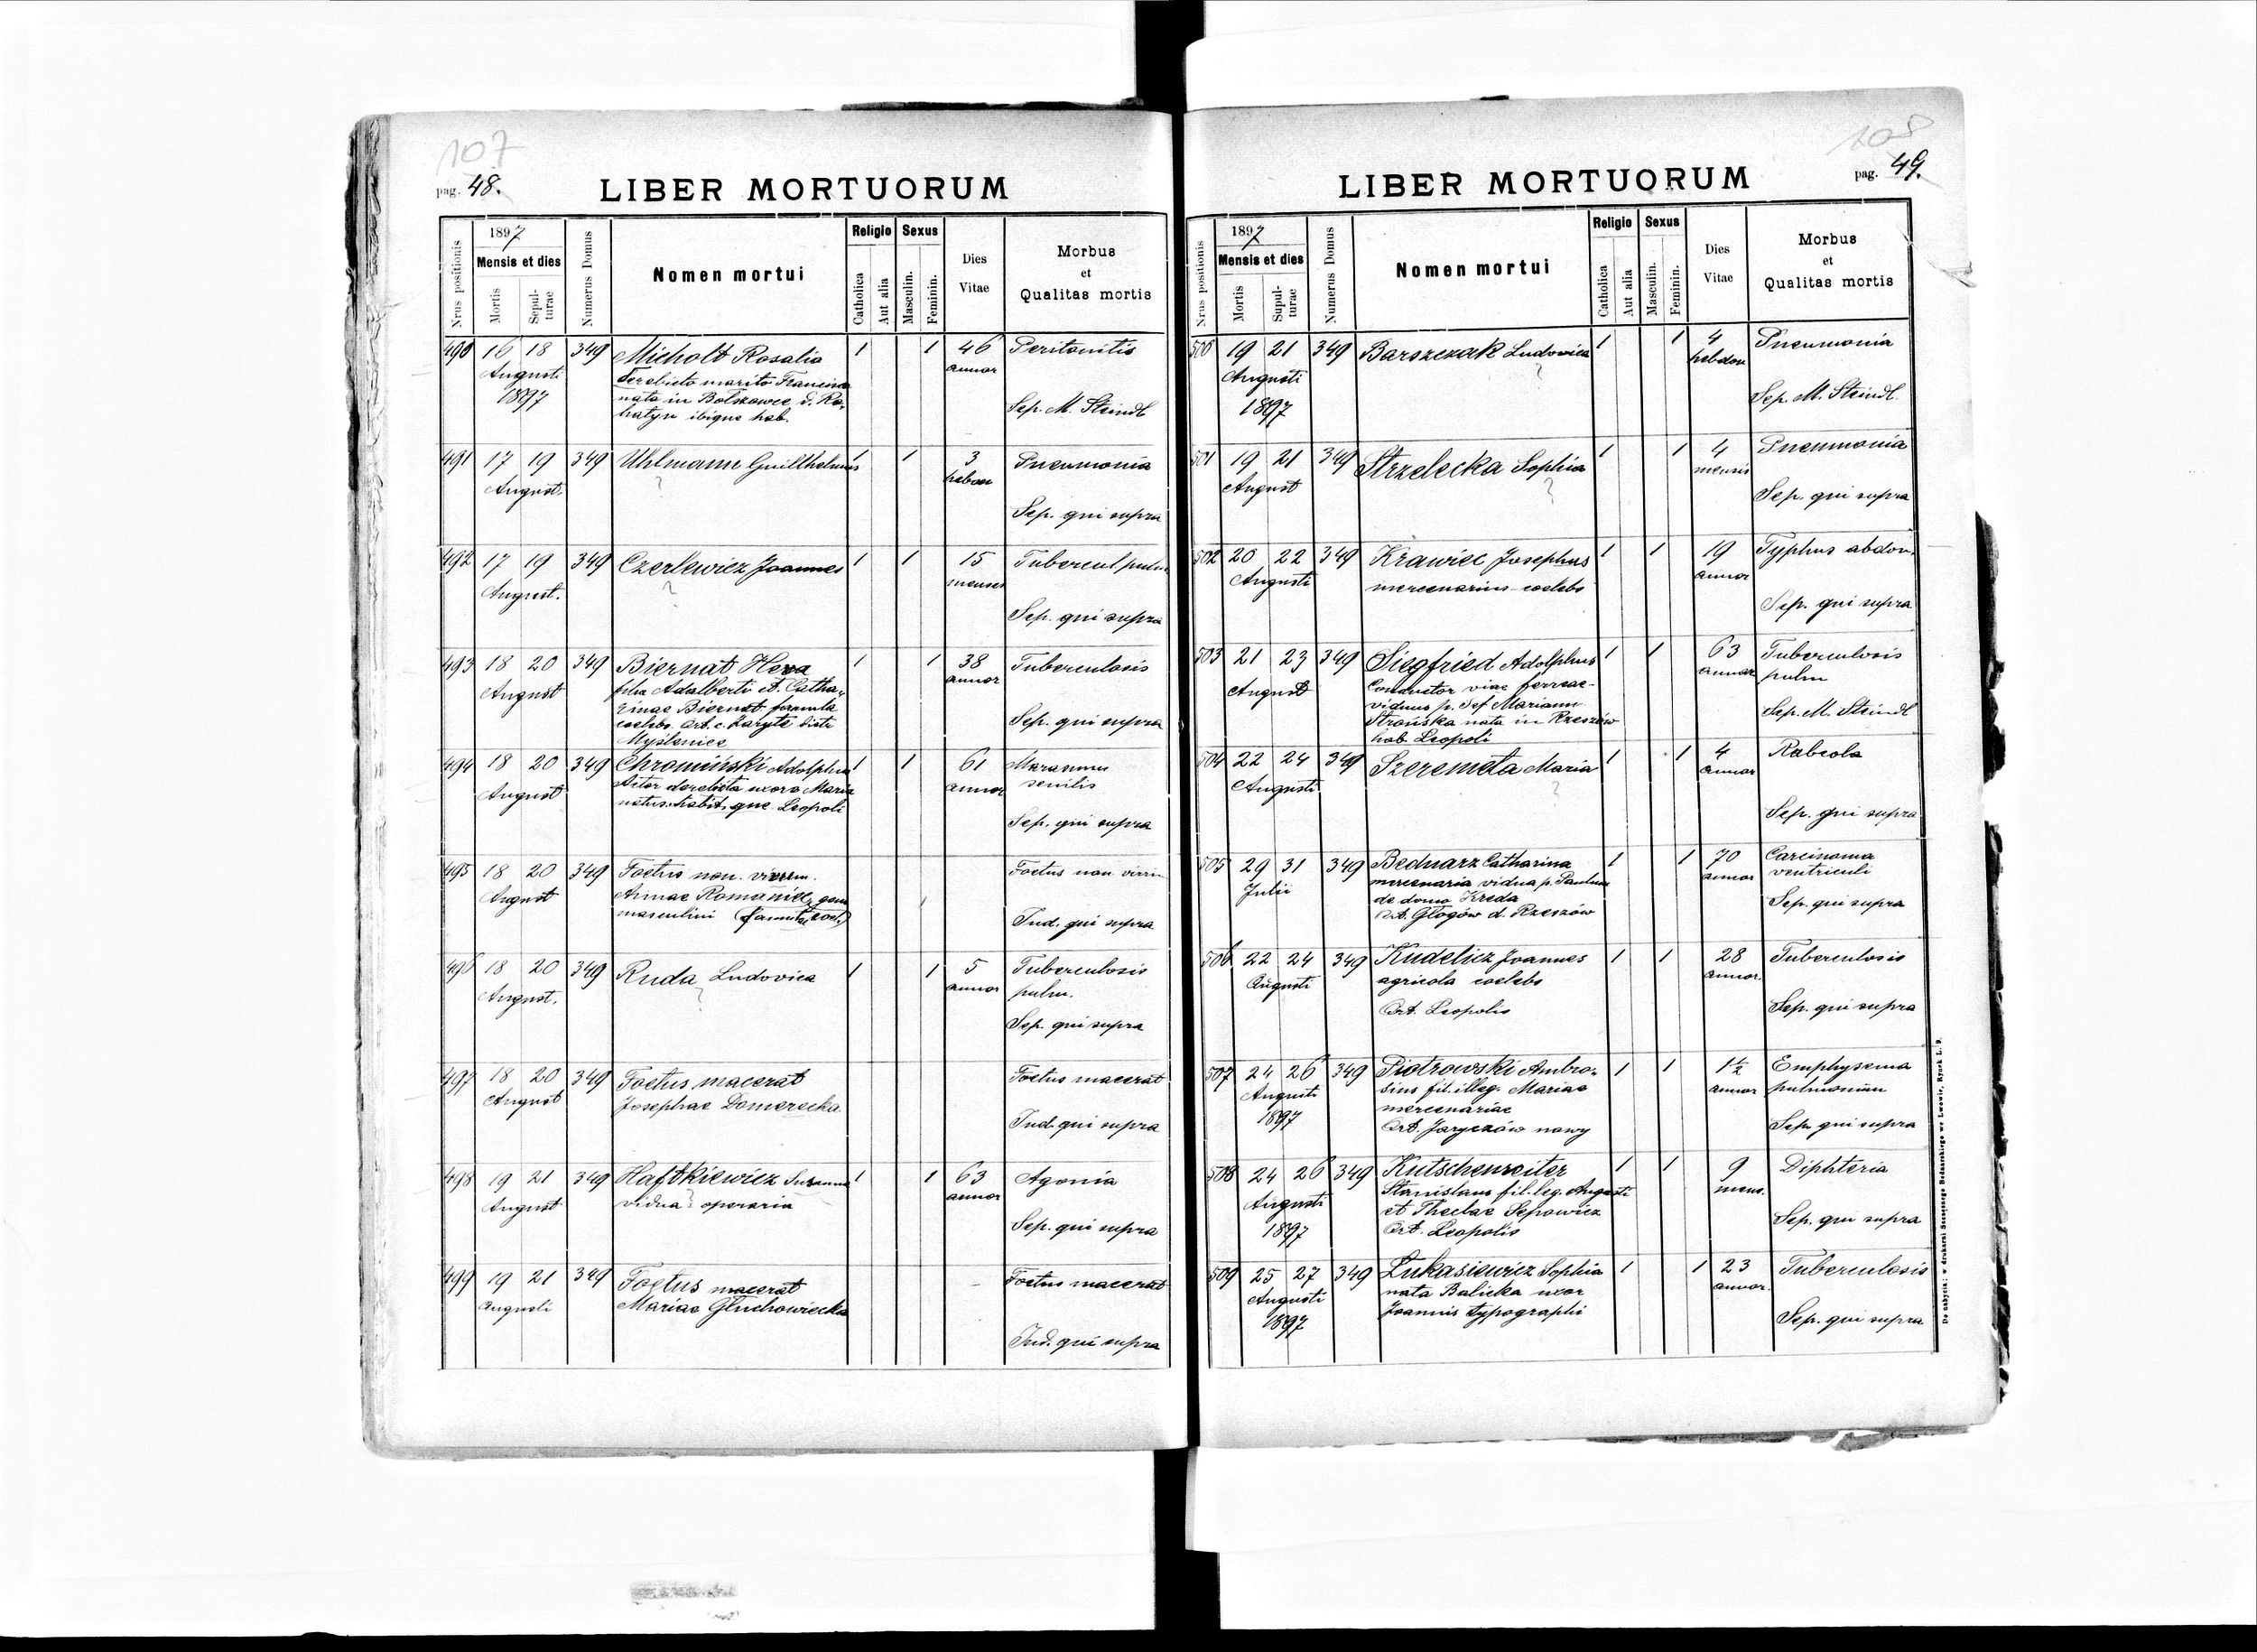 107
pag. 48.
LIBER MORTUORUM
Nrus positionis
1897
Mensis et dies
Mortis
Sepulturae
Numerus Domus
Nomen mortui
Religio
Catholica
Aut alia
Sexus
Masculin.
Feminin.
Dies
Vitae
Morbus
et
Qualitas mortis
490 16 18 349 Micholt Rosalia 1 1 46 Peritonitis
Augusti derelicto marito Francisco annor
1897 nata in Bolszowce d. Ro-
hatyn ibique hab. Sep. M. Steindl
491 17 19 349 Uhlmann Guilhelmus 1 1 3 Pneumonia
August. ? hebdom
Sep. qui supra
492 17 19 349 Czerkewicz Joannes 1 1 15 Tubercul pulm
August. ? menses
Sep. qui supra
493 18 20 349 Biernat Hera 1 1 38 Tuberculosis
August filia Adalberti et Catha- annor
rinae Biernat famula
coelebs. Ort. c. distr Sep. qui supra
Myślenice
494 18 20 349 Chromiński Adolphus 1 1 61 Marasmus
August derelicta uxore Maria annor senilis
natus habit. que Leopoli
Sep. qui supra
495 18 20 349 Foetus non vivum. Foetus non
August Annae Romaniec gen.
masculini (famula coel.) Ind. qui supra
496 18 20 349 Ruda Ludovica 1 1 5 Tuberculosis
August. ? annor pulm.
Sep. qui supra
497 18 20 349 Foetus macerat Foetus macerat
August Josephae Domerecka
Ind. qui supra
498 19 21 349 Haftkiewicz Susanna 1 1 63 Agonia
August vidua operaria annor
Sep. qui supra
499 19 21 349 Foetus macerat Foetus macerat
Augusti Mariae Głuchowiecka
Ind. qui supra
108
pag. 49.
LIBER MORTUORUM
Nrus positionis
1897
Mensis et dies
Mortis
Sepulturae
Numerus Domus
Nomen mortui
Religio
Catholica
Aut alia
Sexus
Masculin.
Feminin.
Dies
Vitae
Morbus
et
Qualitas mortis
500 19 21 349 Barszczak Ludovica 1 1 4 Pneumonia
Augusti ? hebdom
1897 Sep. M. Steindl.
501 19 21 349 Strzelecka Sophia 1 1 4 Pneumonia
August ? mensis
Sep. qui supra
502 20 22 349 Krawiec Josephus 1 1 19 Typhus abdom.
Augusti mercenarius coelebs annor
Sep. qui supra
503 21 23 349 Siegfried Adolphus 1 1 63 Tuberculosis
August Conductor viae ferreae- annor pulm
viduus p. def Mariam
Strońska nata in Rzeszów Sep. M. Steindl
hab. Leopoli
504 22 24 349 Szeremeta Maria 1 1 4 Rabeola
Augusti ? annor
Sep. qui supra
505 29 31 349 Bednarz Catharina 1 1 70 Carcinoma
Julii mercenaria vidua p. Paulum annor ventriculi
de domo Kreda
Ort. Głogów d. Rzeszów Sep. qui supra
506 22 24 349 Kudelicz Joannes 1 1 28 Tuberculosis
Augusti agricola coelebs annor.
Ort. Leopolis Sep. qui supra
507 24 26 349 Piotrowski Ambro- 1 1 1½ Emphysema
Augusti sius fil. illeg. Mariae annor pulmonum
1897 mercenariae
Ort. Jaryczów nowy Sep. qui supra
508 24 26 349 Kutschenreiter 1 1 9 Diphteria
Augusti Stanislaus fil. leg. Augusti mens.
1897 et Theclae Sepowicz
Ort. Leopolis Sep. qui supra
509 25 27 349 Łukasiewicz Sophia 1 1 23 Tuberculosis
Augusti nata Balicka uxor annor.
1897 Joannis typographi
Sep. qui supra
Do nabycia: w drukarni Szczęsnego Bednarskiego we Lwowie, Rynek L. 9.